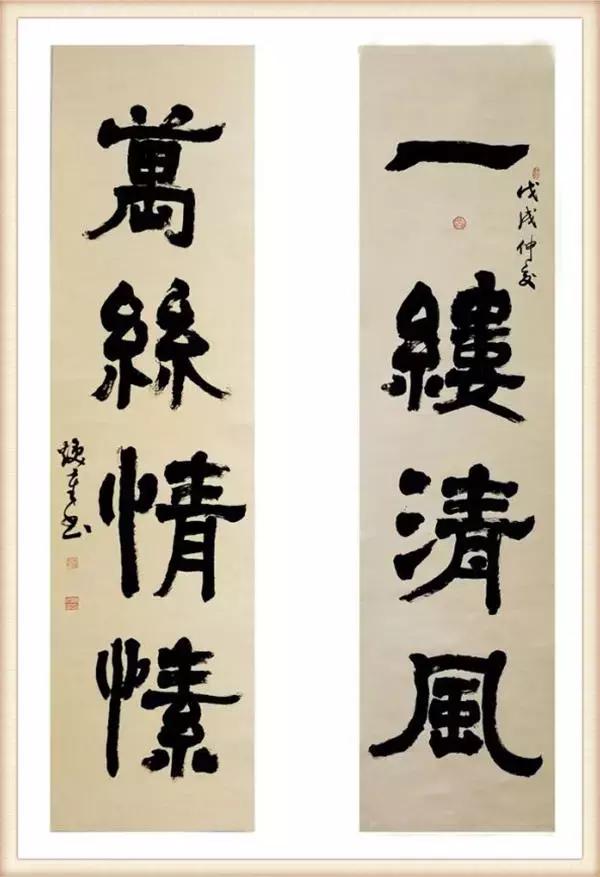 一縷清風
戊戌仲夏
萬絲情愫
书